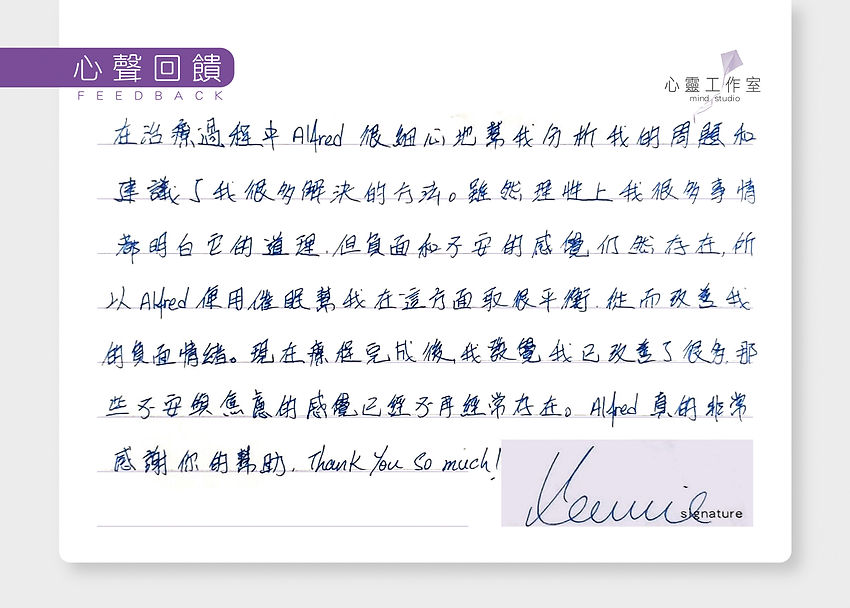 心聲回饋
FEEDBACK
心靈工作室
mind studio
在治療過程中 Alfred 很細心地幫我分析我的問題和
建議了我很多解決的方法。雖然理性上我很多事情
都明白它的道理,但負面和不安的感覺仍然存在,所
以 Alfred 使用催眠幫我在這方面取很平衡,從而改善我
的負面情緒。現在療程完成後,我發覺我已改善了很多,那
些不安與焦慮的感覺已經不再經常存在。Alfred 真的非常
感謝你的幫助, Thank You so much!
Kennie
signature